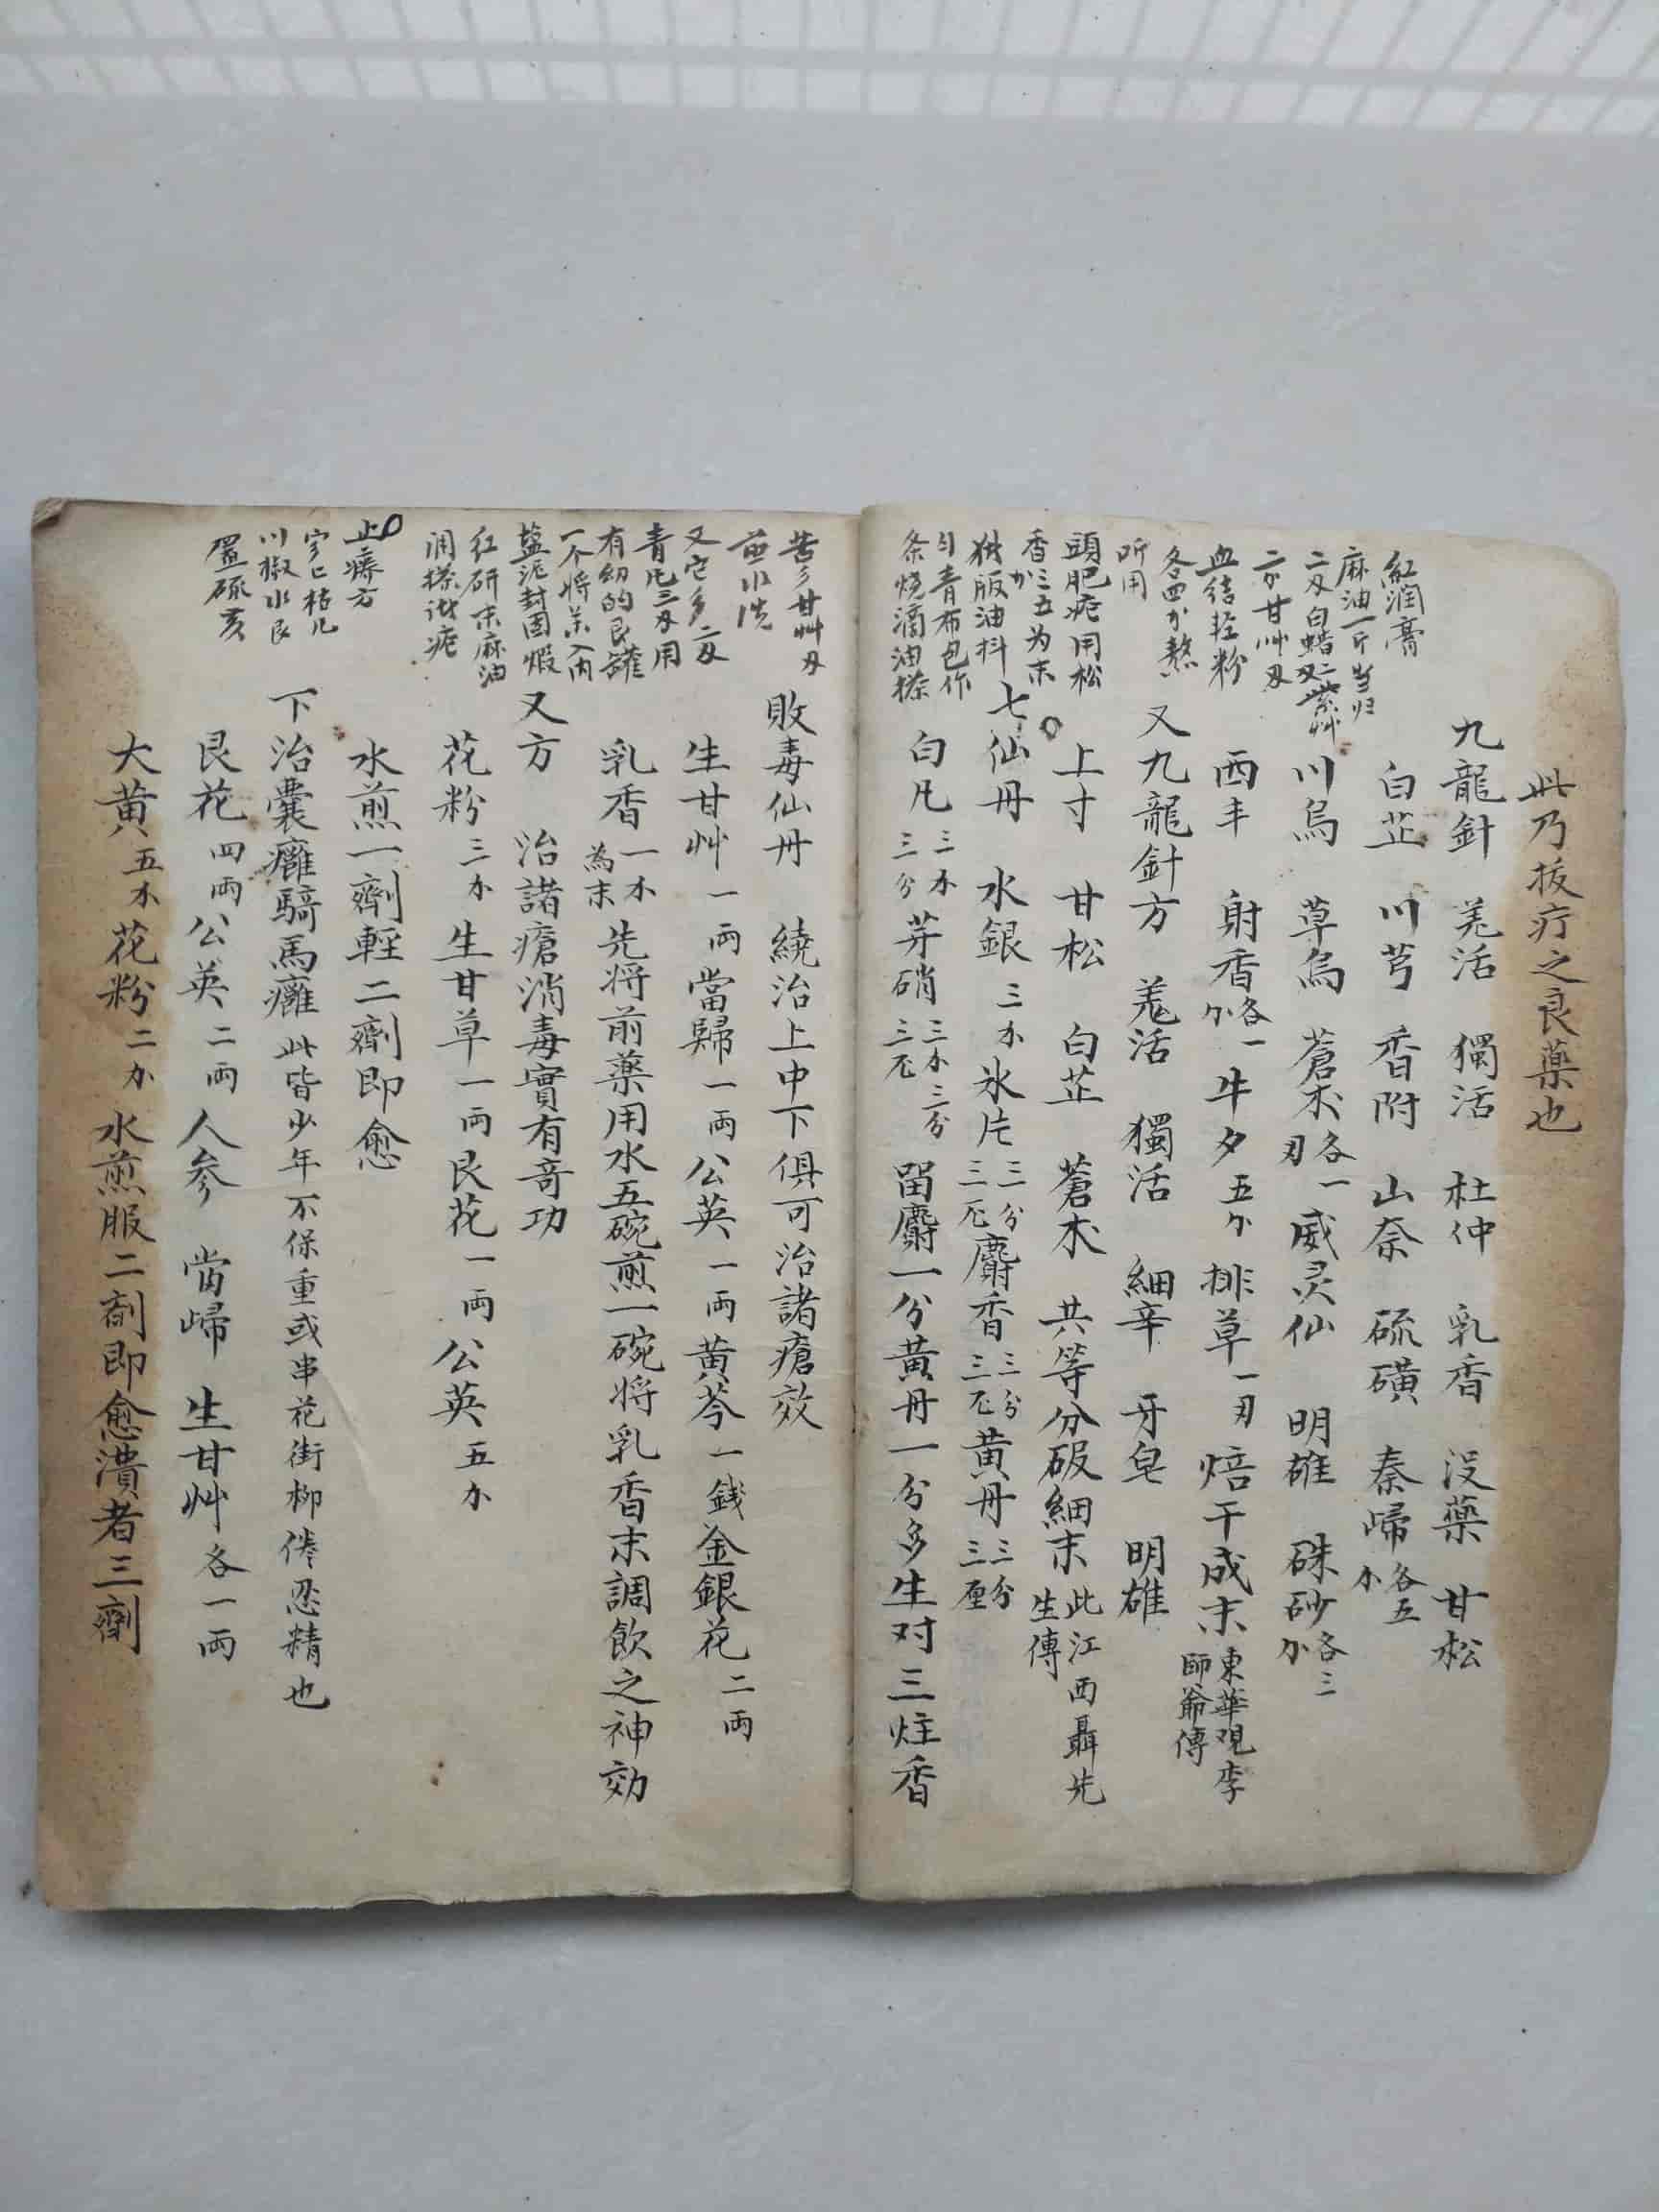 此乃拔疔之良藥也
九龍針 羗活 獨活 杜仲 乳香 没藥 甘松
白芷 川芎 香附 山奈 硫磺 秦歸 各五
川烏 草烏 蒼术 各一 威灵仙 明雄 硃砂 各三
西丰 射香 各一 牛夕 五 排草 一 焙干成末 東華观李師爺傳
又九龍針方 羗活 獨活 細辛 牙皂 明雄
上寸 甘松 白芷 蒼术 共等分碬細末 此江西聶先生傳
七仙丹 水銀 三 氷片 三分三 麝香 三分三 黄丹 三分三厘
白凡 三三分 芽硝 三三分 畱麝一分黄丹一分多生对三炷香
紅潤膏
麻油一斤当归
二 白蜡二 紫艸
二 甘艸
血结轻粉
各四 熬
听用
頭肥疮用松
香 三五为末
猪版油料
匀青布包作
条烧滴油搽
敗毒仙丹 繞治上中下俱可治諸瘡效
生甘艸 一兩 當歸 一兩 公英 一兩 黄芩 一銭 金銀花 二兩
乳香 一 為末 先将前薬用水五碗煎一碗将乳香末調飲之神効
又方 治諸瘡消毒實有奇功
花粉 三 生甘草 一兩 艮花 一兩 公英 五
水煎一劑輕二劑即愈
下治囊癰騎馬癰 此皆少年不保重或串花街柳倦忍精也
艮花 四兩 公英 二兩 人参 當歸 生甘艸 各一兩
大黄 五 花粉 二 水煎服二剤即愈潰者三劑
苦 甘艸
水洗
又它
青 三 用
有幼的艮罐
一个将薬入内
盐泥封固煅
红研末麻油
调搽諸疮
止癢方
川椒水艮